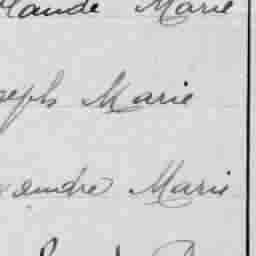 laude Marie
seph Marie
xandre Marie